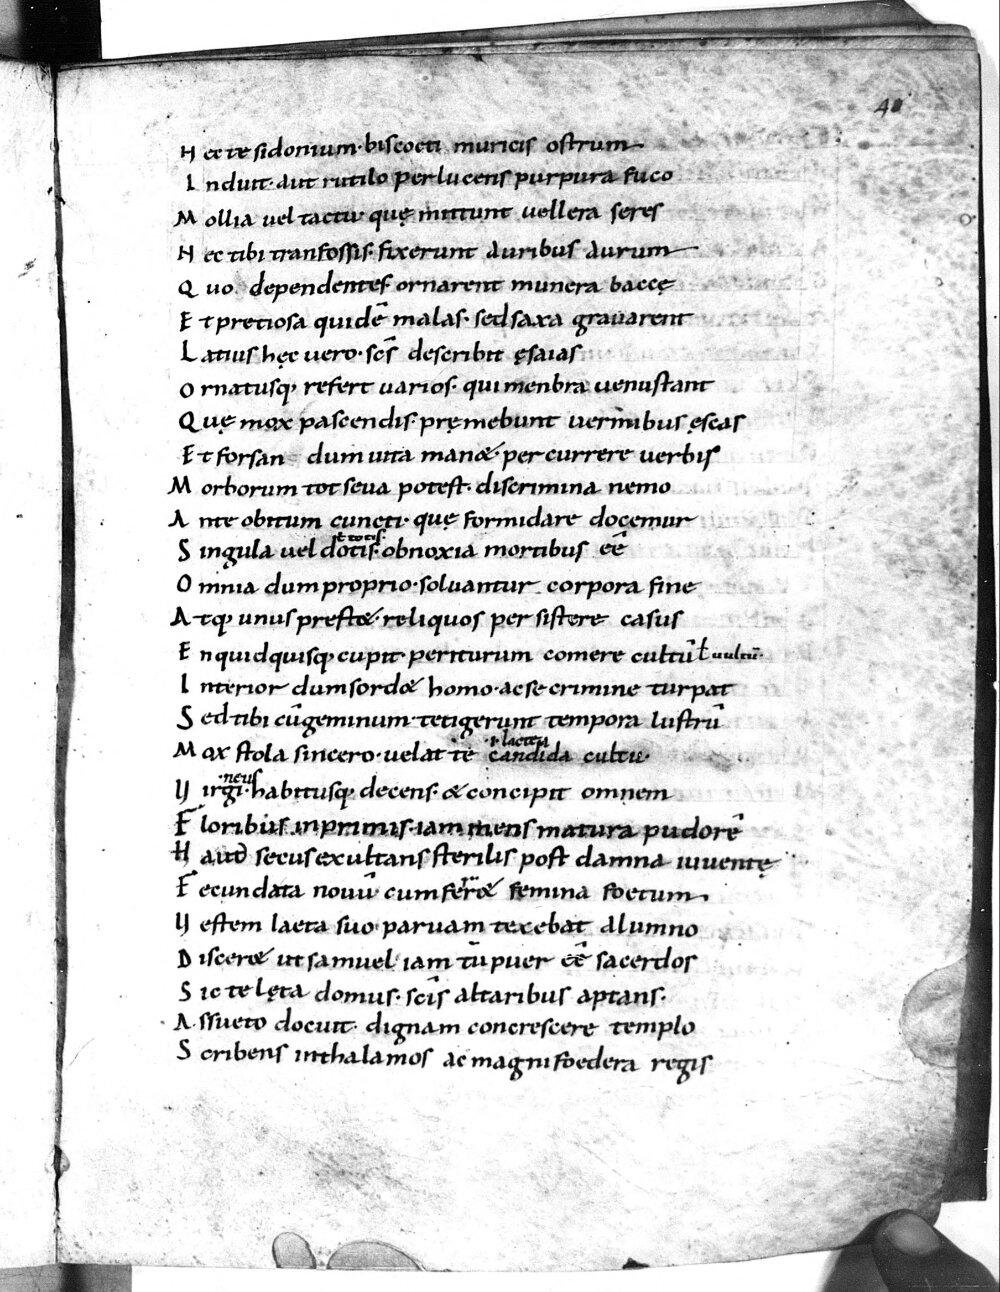 40
Hec te sidonium· biscocti muricis ostrum
Induit· aut rutilo perlucens purpura fuco
Mollia vel tactu· quę mittunt vellera seres
Hec tibi transfossis· fixerunt auribus aurum
Quo· dependentes· ornarent munera baccę
Et preciosa quidē malas· sed saxa gravarent
Latius hęc vero· scs̄ describit ęsaias
Ornatusq; refert varios· qui menbra venustant
Quę mox pascendis· pręmebunt vermibus ęscas
Et forsan dum vita man&· percurrere verbis
Morborum tot seva potest· discrimina nemo
Ante obitum cuncti· quę formidare docemur
se totis·
Singula vel dotis· obnoxia mortibus eē
Omnia dum proprio· solvantur corpora fine
Atq; unus prest&· reliquos persistere casus
En quidquisq; cupit· periturum comere cultū ł vultū·
Interior dum sord& homo· ac se crimine turpat
Sed tibi cū geminum· tetigerunt tempora lustrū
·i· lactea
Mox stola sincero· velat te candida cultu·
·neus
Virgi· habitusq; decens· & concipit omnem
Floribus inprimis· iam mens matura pudorē
Haud secus exultans sterilis post damna iuventę
Fecundata novū cum ferr& femina foetum·
Vestem laeta suo parvam texebat alumno
Discer& ut samuel· iam tū puer eē sacerdos
Sic te lęta domus· scīs altaribus aptans·
Assueto docuit· dignam concrescere templo
Scribens inthalamos ac magni foedera regis